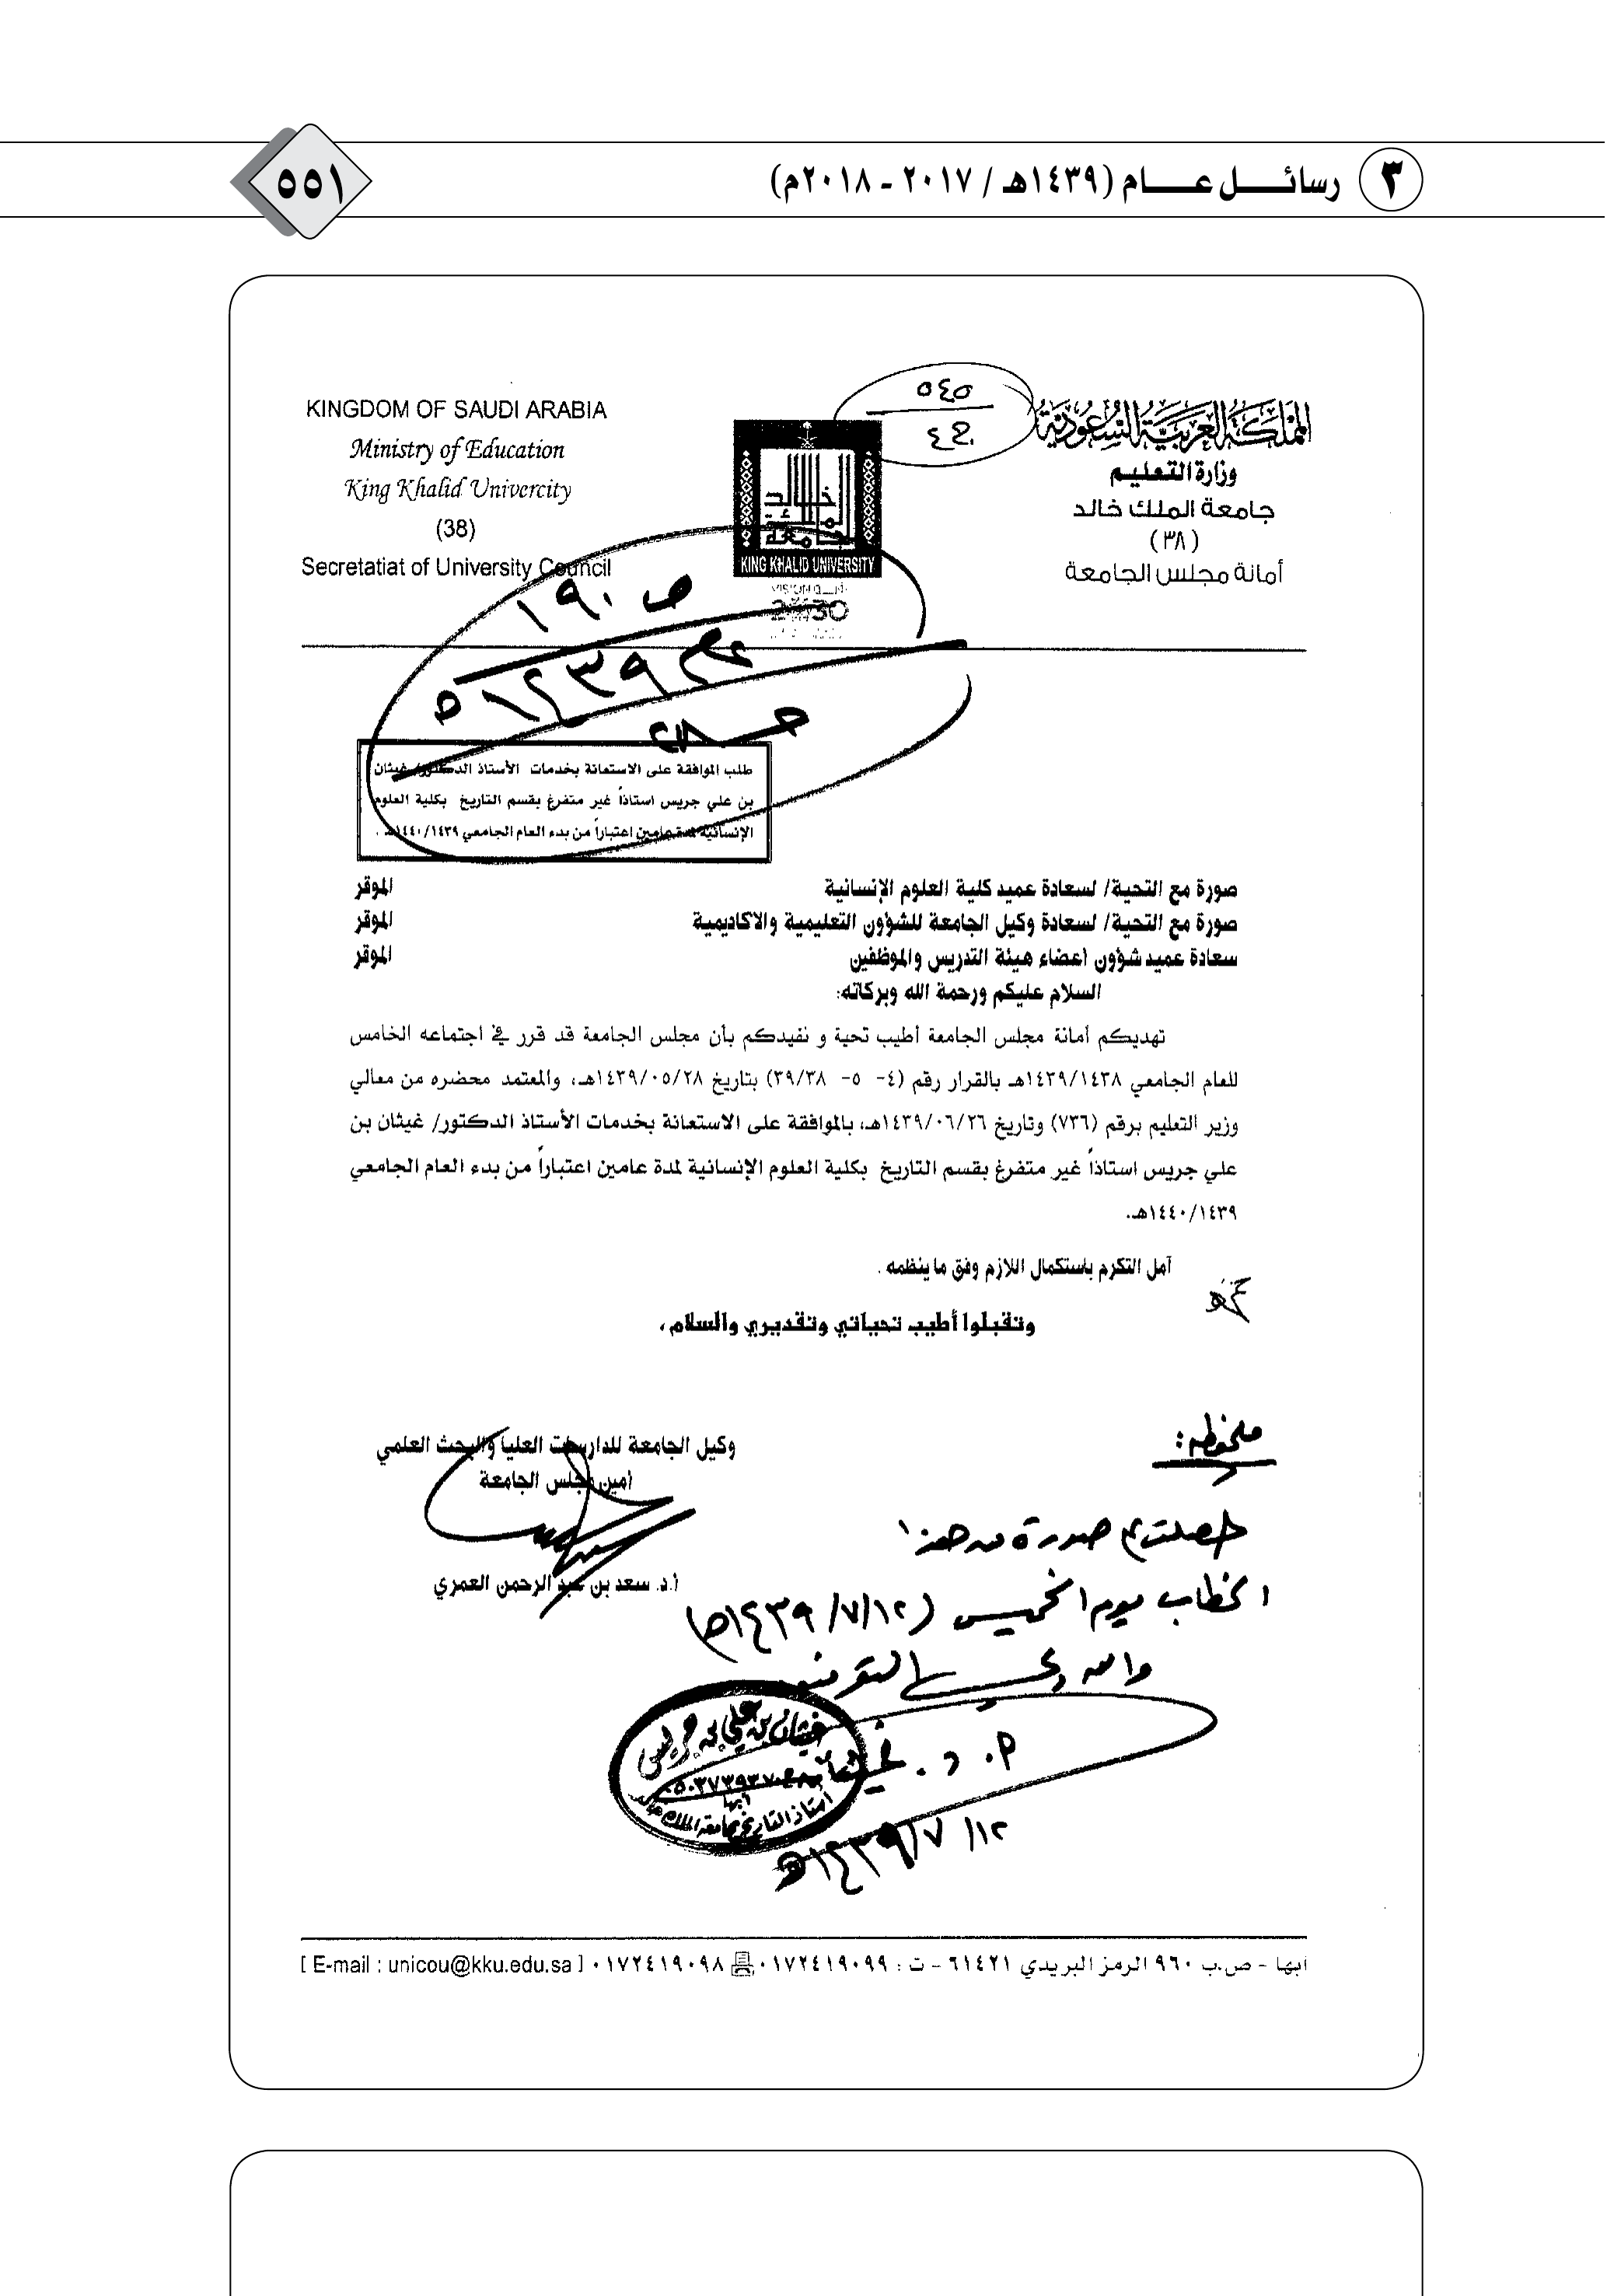 ٣ رسائل عام (١٤٣٩هـ / ٢٠١٧ - ٢٠١٨م)
٥٥١
المملكة العربية السعودية
وزارة التعليم
جامعة الملك خالد
(٣٨)
أمانة مجلس الجامعة
٥٤٥
جامعة الملك خالد
KING KHALID UNIVERSITY
VISION رؤيـــة
2030
KINGDOM OF SAUDI ARABIA
Ministry of Education
King Khalid Univercity
(38)
Secretatiat of University Council
ص ١٩٠
١٤٣٩هـ
طلب الموافقة على الاستعانة بخدمات الأستاذ الدكتور/ غيثان
بن علي جريس استاذاً غير متفرغ بقسم التاريخ بكلية العلوم
الإنسانية لمدة عامين اعتباراً من بدء العام الجامعي ١٤٤٠/١٤٣٩هـ .
صورة مع التحية/ لسعادة عميد كلية العلوم الإنسانية الموقر
صورة مع التحية/ لسعادة وكيل الجامعة للشؤون التعليمية والاكاديمية الموقر
سعادة عميد شؤون اعضاء هيئة التدريس والموظفين الموقر
السلام عليكم ورحمة الله وبركاته:
تهديكم أمانة مجلس الجامعة أطيب تحية و نفيدكم بأن مجلس الجامعة قد قرر في اجتماعه الخامس
للعام الجامعي ١٤٣٩/١٤٣٨هـ بالقرار رقم (٤- ٥- ٣٩/٣٨) بتاريخ ١٤٣٩/٠٥/٢٨هـ، والمعتمد محضره من معالي
وزير التعليم برقم (٧٣٦) وتاريخ ١٤٣٩/٠٦/٢٦هـ، بالموافقة على الاستعانة بخدمات الأستاذ الدكتور/ غيثان بن
علي جريس استاذاً غير متفرغ بقسم التاريخ بكلية العلوم الإنسانية لمدة عامين اعتباراً من بدء العام الجامعي
١٤٤٠/١٤٣٩هـ.
آمل التكرم باستكمال اللازم وفق ما ينظمه .
وتقبلوا أطيب تحياتي وتقديري والسلام،
وكيل الجامعة للدارسات العليا والبحث العلمي
أمين مجلس الجامعة
أ.د. سعد بن عبد الرحمن العمري
ملحوظة:
حصلت على صورة من هذا
الخطاب يوم الخميس (١٢/٧/١٤٣٩هـ)
والله ولي التوفيق
أ. د. غيثان
١٢/٧/١٤٣٩هـ
غيثان بن علي بن جريس
أبها
استاذ التاريخ بجامعة الملك خالد
أبها - ص.ب ٩٦٠ الرمز البريدي ٦١٤٢١ - ت : ٠١٧٢٤١٩٠٩٩ ٠١٧٢٤١٩٠٩٨ [ E-mail : unicou@kku.edu.sa ]